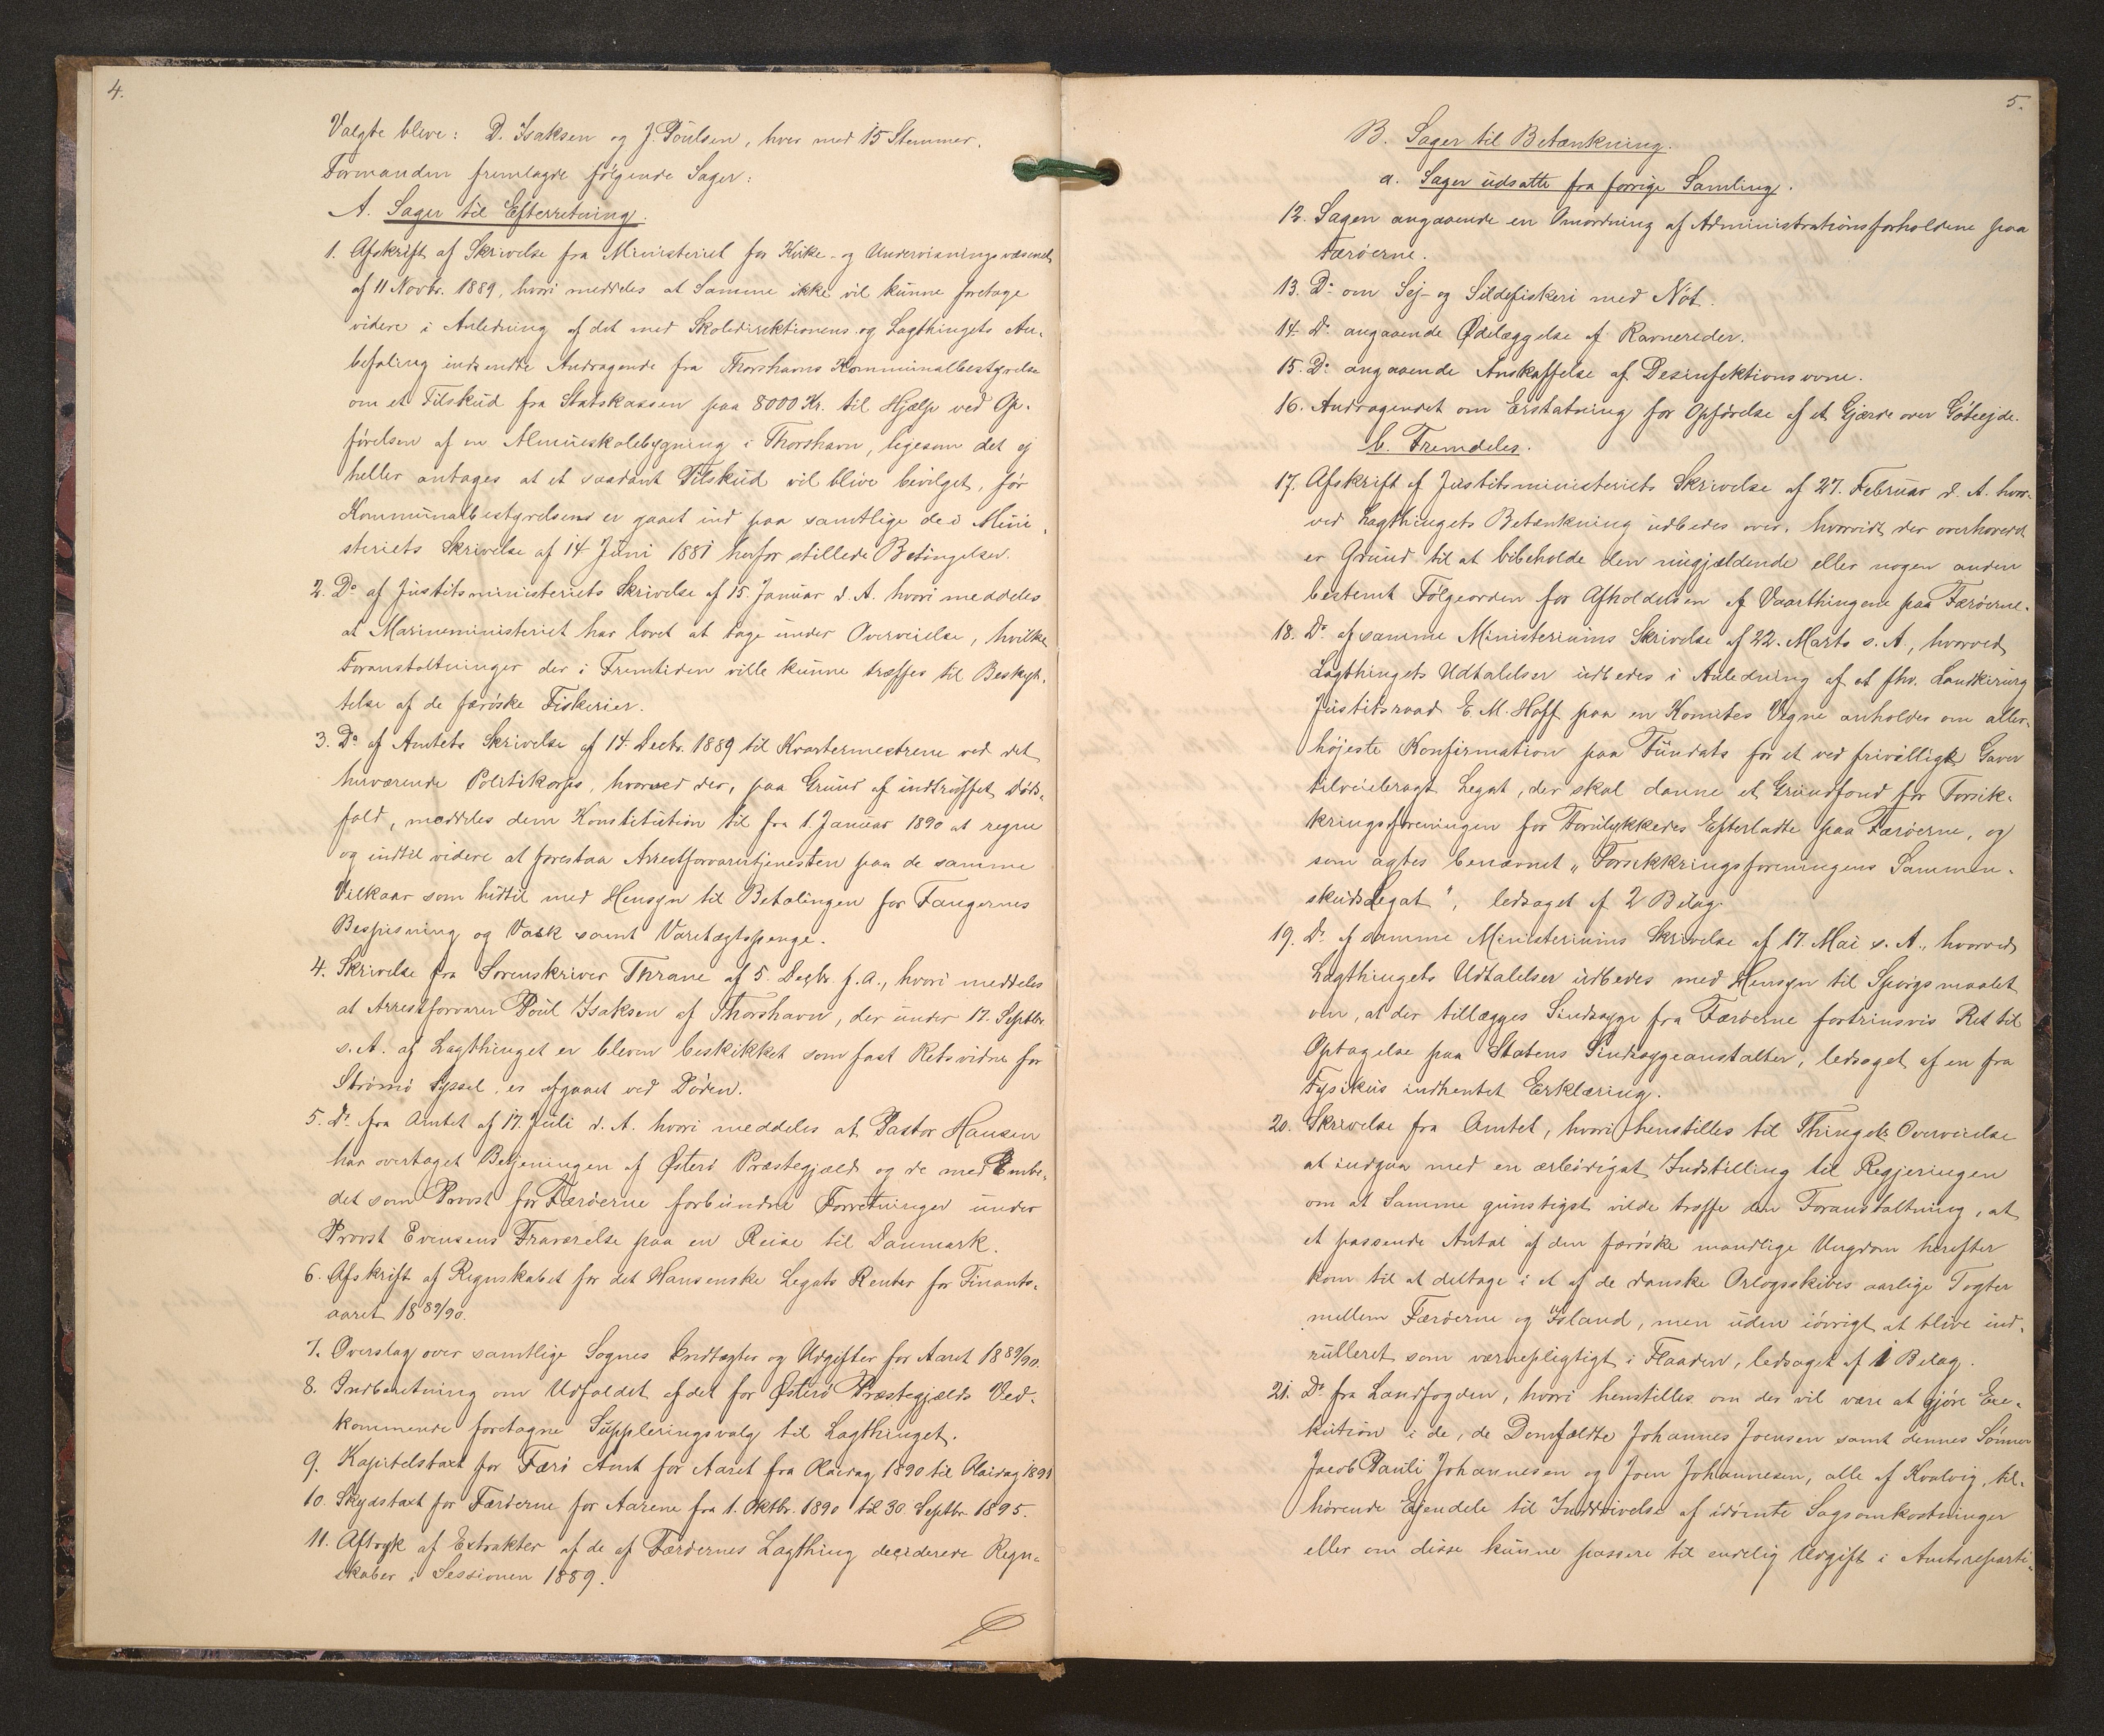 4.
Valgte blive: D. Isaksen og J. Poulsen, hver med 15 Stemmer.
Formanden fremlagde følgende Sager:
A. Sager til Efterretning.
1. Afskrift af Skrivelse fra Ministeriet for Kirke- og Undervisningsvæsenet
af 11 Novbr. 1889, hvori meddeles at Samme ikke vil kunne foretage
videre i Anledning af det med Skoledirektionens og Lagthingets An-
befaling indsendte Andragende fra Thorshavns Kommunalbestyrelse
om et Tilskud fra Statskassen paa 8000 Kr. til Hjælp ved Op-
førelsen af en Almueskolebygning i Thorshavn, ligesom det ej
heller antages at et saadant Tilskud vil blive bevilget, før
Kommunalbestyrelsens er gaaet ind paa samtlige de i Mini-
steriets Skrivelse af 14 Juni 1881 herfor stillede Betingelser.
2. Do af Justitsministeriets Skrivelse af 15. Januar d. A. hvori meddeles
at Marineministeriet har lovet at tage under Overveielse, hvilke
Foranstaltninger der i Fremtiden ville kunne træffes til Beskyt-
telse af de færøske Fiskerier.
3. Do af Amtets Skrivelse af 14. Decbr. 1889 til Kvartermestrene ved det
herværende Politikorps, hvorved der, paa Grund af indtruffet Døds-
fald, meddeles dem Konstitution til fra 1. Januar 1890 at regne
og indtil videre at forestaa Arrestforvarertjenesten paa de samme
Vilkaar som hidtil med Hensyn til Betalingen for Fangernes
Bespisning og Vask samt Varetægtspenge.
4. Skrivelse fra Sorenskriver Thrane af 5. Decbr. f. A., hvori meddeles
at Arrestforvarer Poul Isaksen af Thorshavn, der under 17. Septbr.
s. A. af Lagthinget er bleven beskikket som fast Retsvidne for
Strømø Syssel, er afgaaet ved Døden.
5. Do fra Amtet af 17. Juli d. A. hvori meddeles at Pastor Hansen
har overtaget Betjeningen af Østerø Præstegjæld og de med Embe-
det som Provst for Færøerne forbundne Forretninger under
Provst Evensens Fraværelse paa en Reise til Danmark.
6. Afskrift af Regnskabet for det Hansenske Legats Renter for Finants-
aaret 1889/90.
7. Overslag over samtlige Sognes Indtægter og Udgifter for Aaret 1889/90.
8. Indberetning om Udfaldet af det for Østerø Præstegjælds Ved-
kommende foretagne Suppleringsvalg til Lagthinget.
9. Kapitelstaxt for Færø Amt for Aaret fra Olaidag 1890 til Olaidag 1891
10. Skydstaxt for Færøerne for Aarene fra 1. Oktbr. 1890 til 30. Septbr. 1895.
11. Aftryk af Extrakter af de af Færøernes Lagthing deciderede Regn-
skaber i Sessionen 1889.
5.
B. Sager til Betænkning.
a. Sager udsatte fra forrige Samling.
12. Sagen angaaende en Omordning af Administrationsforholdene paa
Færøerne.
13. Do om Sej- og Sildefiskeri med Nót.
14. Do angaaende Ødelæggelse af Ravnereder.
15. Do angaaende Anskaffelse af Desinfektionsovne.
16. Andragendet om Erstatning for Opførelse af et Gjærde over Gøteejde.
b. Fremdeles.
17. Afskrift af Justitsministeriets Skrivelse af 27. Februar d. A. hvor-
ved Lagthingets Betænkning udbedes over, hvorvidt der overhoved
er Grund til at bibeholde den nugjældende eller nogen anden
bestemt Følgeorden for Afholdelsen af Vaarthingene paa Færøerne.
18. Do af samme Ministeriums Skrivelse af 22. Marts s. A., hvorved
Lagthingets Udtalelser udbedes i Anledning af at fhv. Landkirurg
Justitsraad E. M. Hoff paa en Komites Vegne anholder om aller-
højeste Konfirmation paa Fundats for et ved frivillige Gaver
tilveiebragt Legat, der skal danne et Grundfond for Forsik-
kringsforeningen for Forulykkedes Efterladte paa Færøerne, og
som agtes benævnet „Forsikkringsforeningens Sammen-
skudslegat", ledsaget af 2 Bilag.
19. Do af samme Ministeriums Skrivelse af 17. Mai s. A., hvorved
Lagthingets Udtalelser udbedes med Hensyn til Spørgsmaalet
om, at der tillægges Sindssyge fra Færøerne fortrinsvis Ret til
Optagelse paa Statens Sindssygeanstalter, ledsaget af en fra
Fysikus indhentet Erklæring.
20. Skrivelse fra Amtet, hvori henstilles til Thingets Overveielse
at indgaa med en ærbødigst Indstilling til Regjeringen
om at Samme gunstigst vilde træffe den Foranstaltning, at
et passende Antal af den færøske mandlige Ungdom herefter
kom til at deltage i et af de danske Orlogsskibes aarlige Togter
mellem Færøerne og Island, men uden iøvrigt at blive ind-
rulleret som værnepligtigt i Flaaden, ledsaget af 1 Belag.
21. Do fra Landfogden, hvori henstilles om der vil være at gjøre Exe-
kution i de, de Domfældte Johannes Joensen samt dennes Sønner
Jacob Pauli Johannesen og Joen Johannesen, alle af Kvalvig, til-
hørende Ejendele til Inddrivelse af idømte Sagsomkostninger
eller om disse kunne passere til endelig Udgift i Amtsreparti-